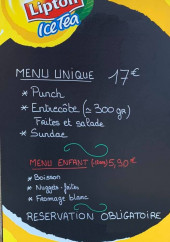 Lipton
Ice Tea
MENU UNIQUE 17€
* Punch
* Entrecôte (≃ 300 gr)
Frites et salade
* Sundae
MENU ENFANT 5,90€
* Boisson
* Nuggets-frites
* Fromage blanc
RESERVATION OBLIGATOIRE